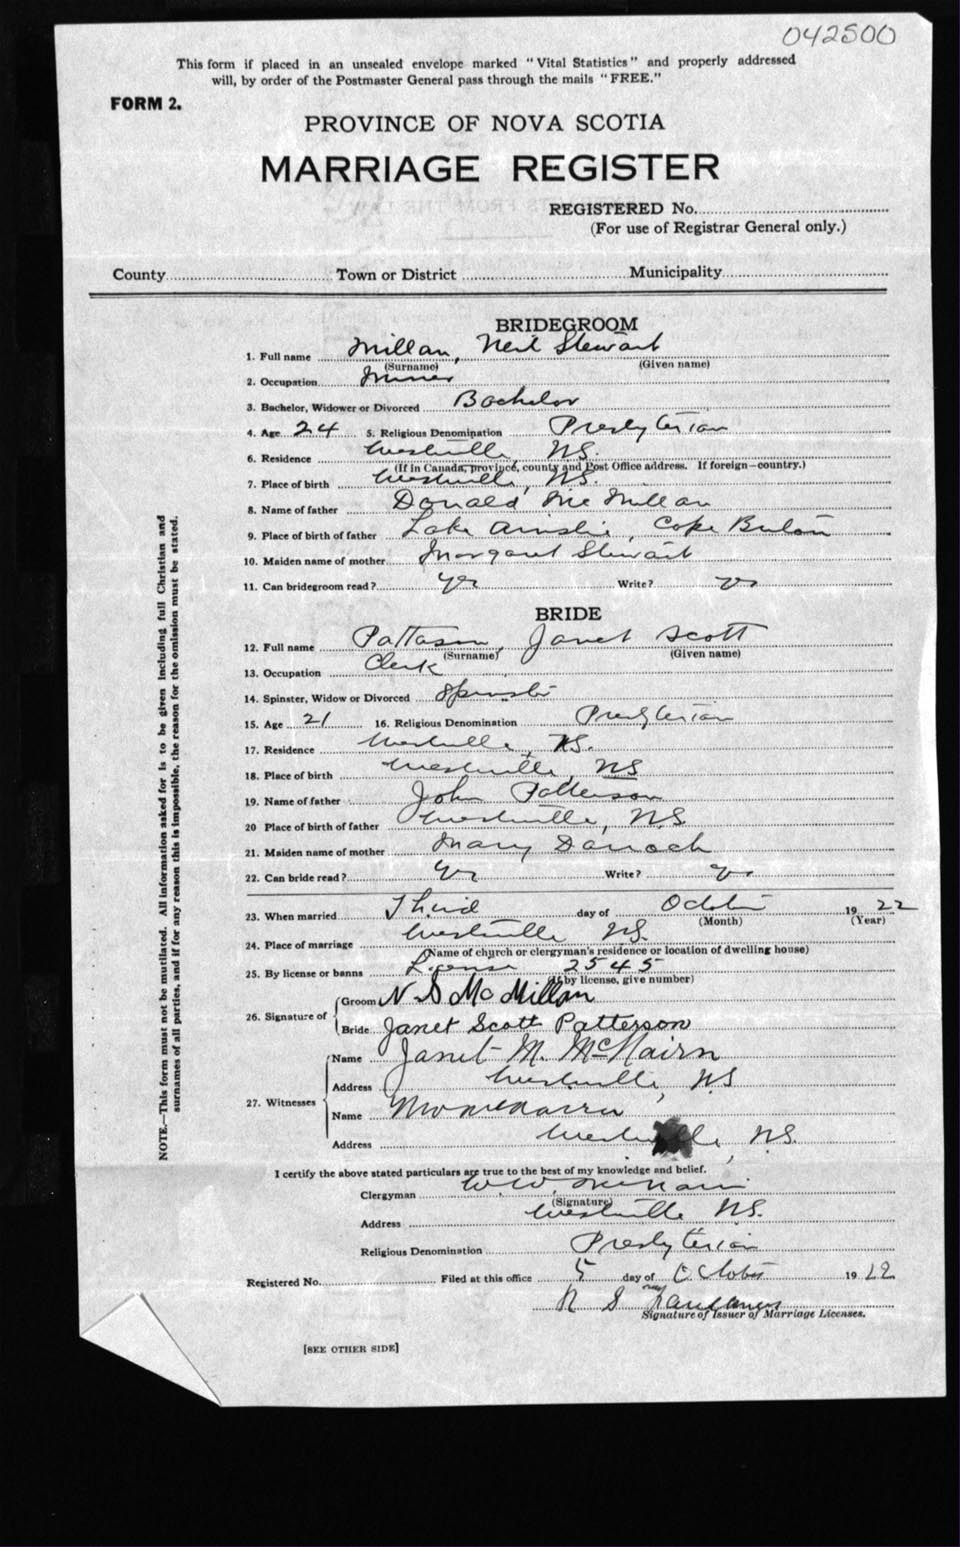 042500
This form if placed in an unsealed envelope marked "Vital Statistics" and properly addressed
will, by order of the Postmaster General pass through the mails "FREE."
FORM 2.
PROVINCE OF NOVA SCOTIA
MARRIAGE REGISTER
REGISTERED No.
(For use of Registrar General only.)
County Town or District Municipality
BRIDEGROOM
1. Full name Millan, Neil Stewart
(Surname) (Given name)
2. Occupation Miner
3. Bachelor, Widower or Divorced Bachelor
4. Age 24 5. Religious Denomination Presbyterian
6. Residence Westville NS.
(If in Canada, province, county and Post Office address. If foreign—country.)
7. Place of birth Westville, NS.
8. Name of father Donald McMillan
9. Place of birth of father Lake Ainslie, Cape Breton
10. Maiden name of mother Margaret Stewart
11. Can bridegroom read? Yes Write? Yes
BRIDE
12. Full name Patterson, Janet Scott
(Surname) (Given name)
13. Occupation Clerk
14. Spinster, Widow or Divorced Spinster
15. Age 21 16. Religious Denomination Presbyterian
17. Residence Westville, N.S.
18. Place of birth Westville, NS
19. Name of father John Patterson
20 Place of birth of father Westville, N.S.
21. Maiden name of mother Mary Darroch
22. Can bride read? Yes Write? Yes
23. When married Third day of October 1922
(Month) (Year)
24. Place of marriage Westville N.S.
(Name of church or clergyman's residence or location of dwelling house)
25. By license or banns License 2545
(If by license, give number)
26. Signature of Groom N S McMillan
Bride Janet Scott Patterson
27. Witnesses Name Janet M. McNairn
Address Westville, NS
Name
Address Westville, N.S.
I certify the above stated particulars are true to the best of my knowledge and belief.
Clergyman W W McNairn
(Signature)
Address Westville N.S.
Religious Denomination Presbyterian
Registered No. Filed at this office 5 day of October 1922
R S
Signature of Issuer of Marriage Licenses.
[SEE OTHER SIDE]
NOTE.—This form must not be mutilated. All information asked for is to be given including full Christian and
surnames of all parties, and if for any reason this is impossible, the reason for the omission must be stated.